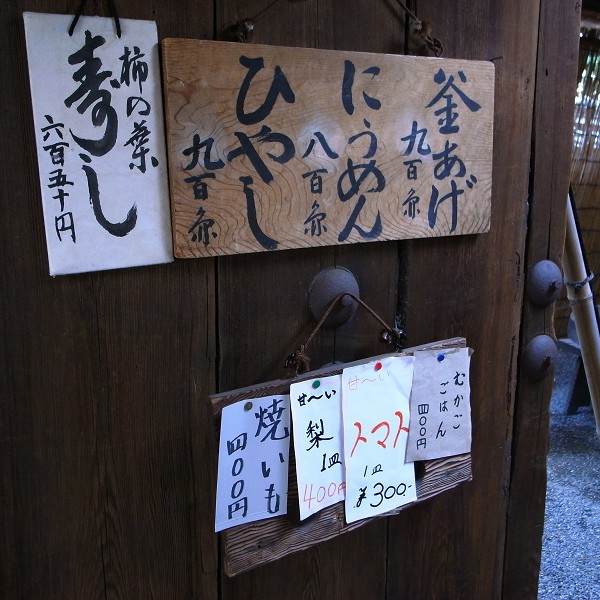 柿の葉
寿し
六百五十円
釜あげ
九百
にうめん
八百
ひやし
九百
むかご
ごはん
四〇〇円
甘〜い
トマト
1皿
¥300-
甘〜い
梨
1皿
400円
焼いも
四〇〇円